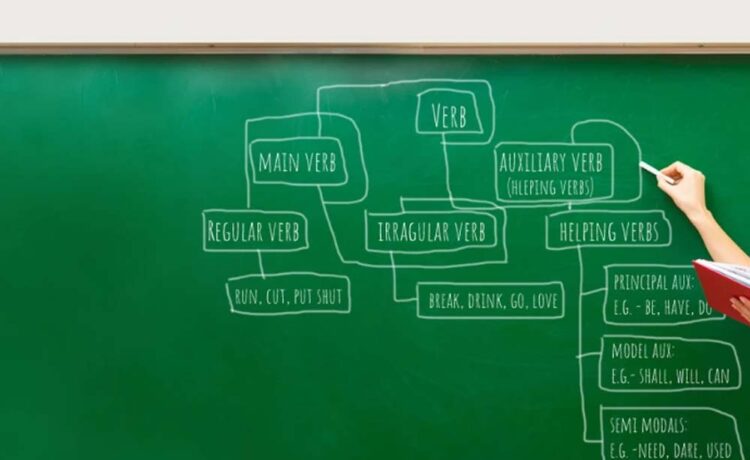 VERB
MAIN VERB
AUXILIARY VERB
(HLEPING VERBS)
REGULAR VERB
IRRAGULAR VERB
HELPING VERBS
RUN, CUT, PUT SHUT
BREAK, DRINK, GO, LOVE
PRINCIPAL AUX:
E.G. - BE, HAVE, DO
MODEL AUX:
E.G.- SHALL, WILL, CAN
SEMI MODALS:
E.G. -NEED, DARE, USED